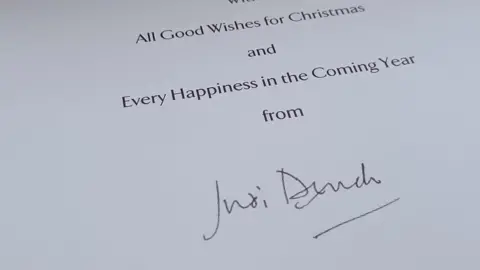 All Good Wishes for Christmas
and
Every Happiness in the Coming Year
from
Judi Dench